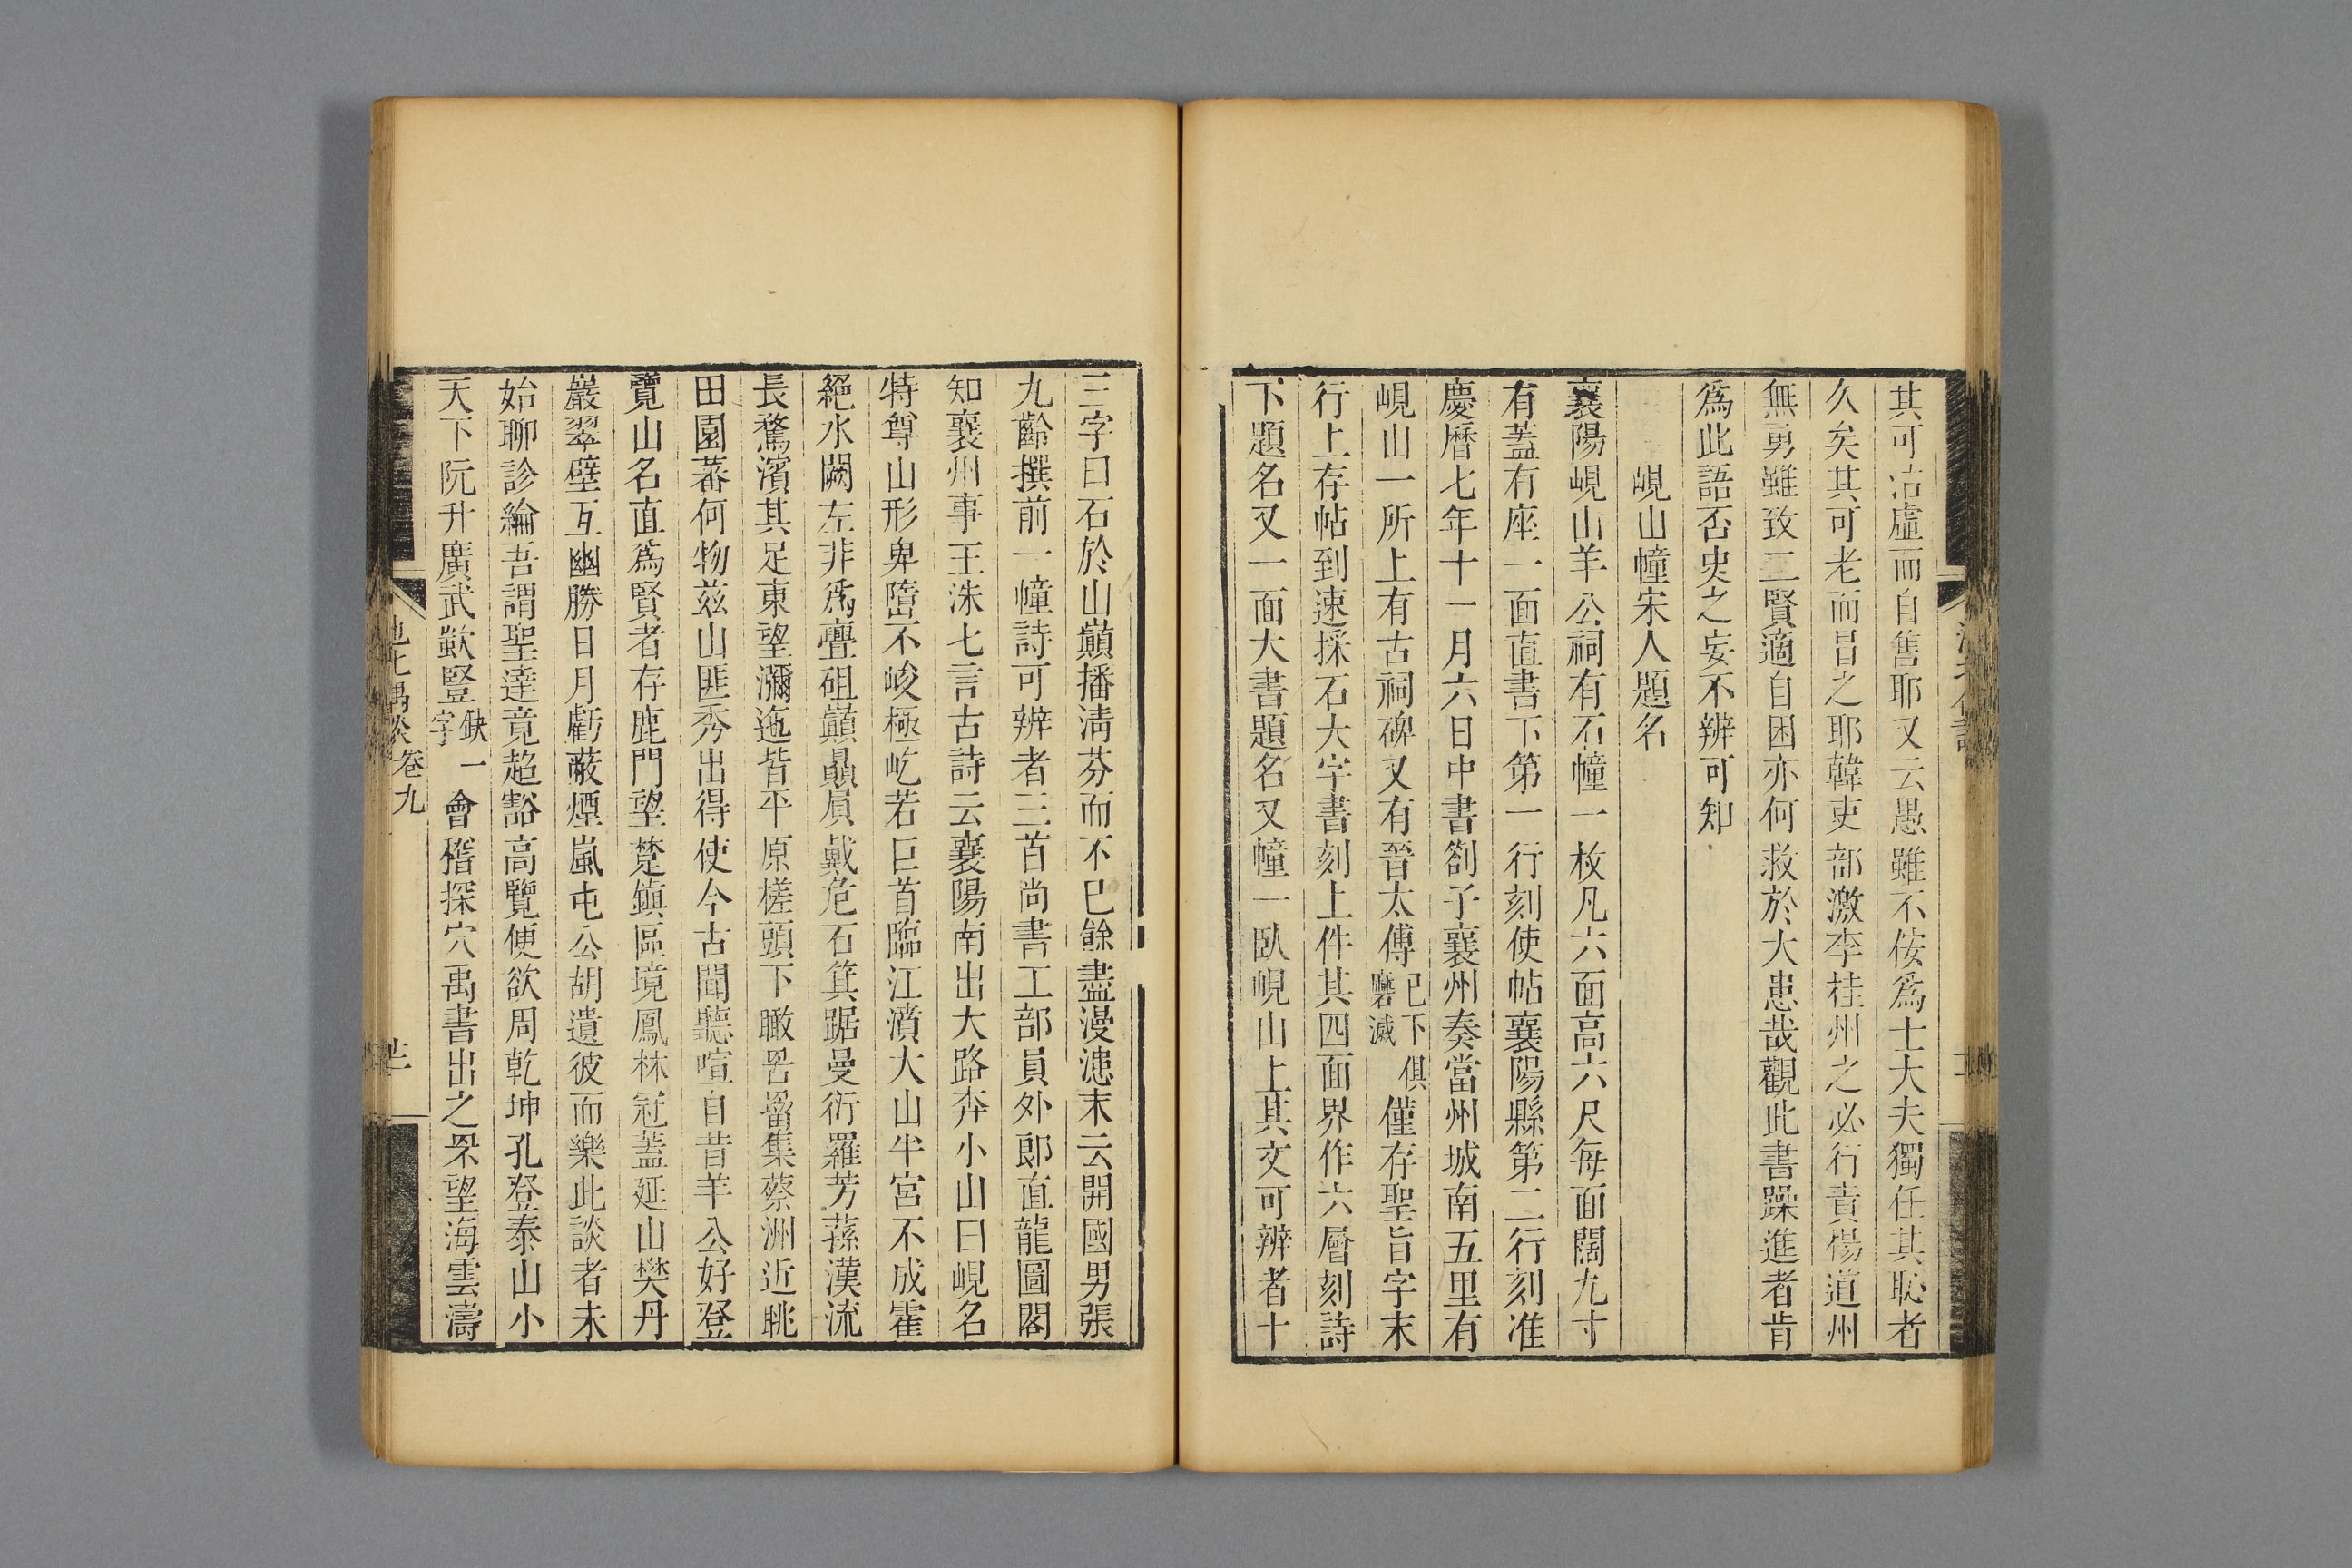 其可沽虛而自售耶又云愚雖不佞爲士大夫獨任其恥者
久矣其可老而昌之耶韓吏部激李桂州之必行責楊道州
無勇雖致二賢適自困亦何救於大患哉觀此書躁進者肯
爲此語否史之妄不辨可知
峴山幢宋人題名
襄陽峴山羊公祠有石幢一枚凡六面高六尺每面闊九寸
有蓋有座一面直書下第一行刻使帖襄陽縣第二行刻准
慶曆七年十一月六日中書劄子襄州奏當州城南五里有
峴山一所上有古祠碑又有晉太傅已下俱磨滅僅存聖旨字末
行上存帖到速採石大字書刻上件其四面界作六層刻詩
下題名又一面大書題名又幢一臥峴山上其文可辨者十
三字曰石於山巔播淸芬而不已餘盡漫漶末云開國男張
九齡撰前一幢詩可辨者三首尚書工部員外郎直龍圖閣
知襄州事王洙七言古詩云襄陽南出大路奔小山曰峴名
特尊山形卑墮不峻極屹若巨首臨江濆大山半宮不成霍
絕水闕左非爲亹砠巔贔屭戴危石箕踞曼衍羅芳蓀漢流
長騖濱其足東望瀰迤皆平原槎頭下瞰罟罶集蔡洲近眺
田園蕃何物兹山匪秀出得使今古聞聽喧自昔羊公好登
覽山名直爲賢者存鹿門望楚鎮區境鳳林冠蓋延山樊丹
巖翠壁互幽勝日月虧蔽煙嵐屯公胡遺彼而樂此談者未
始聊診綸吾謂聖達竟超豁高覽便欲周乾坤孔登泰山小
天下阮升廣武歎豎缺一字會稽探穴禹書出之罘望海雲濤
池北偶談 卷九